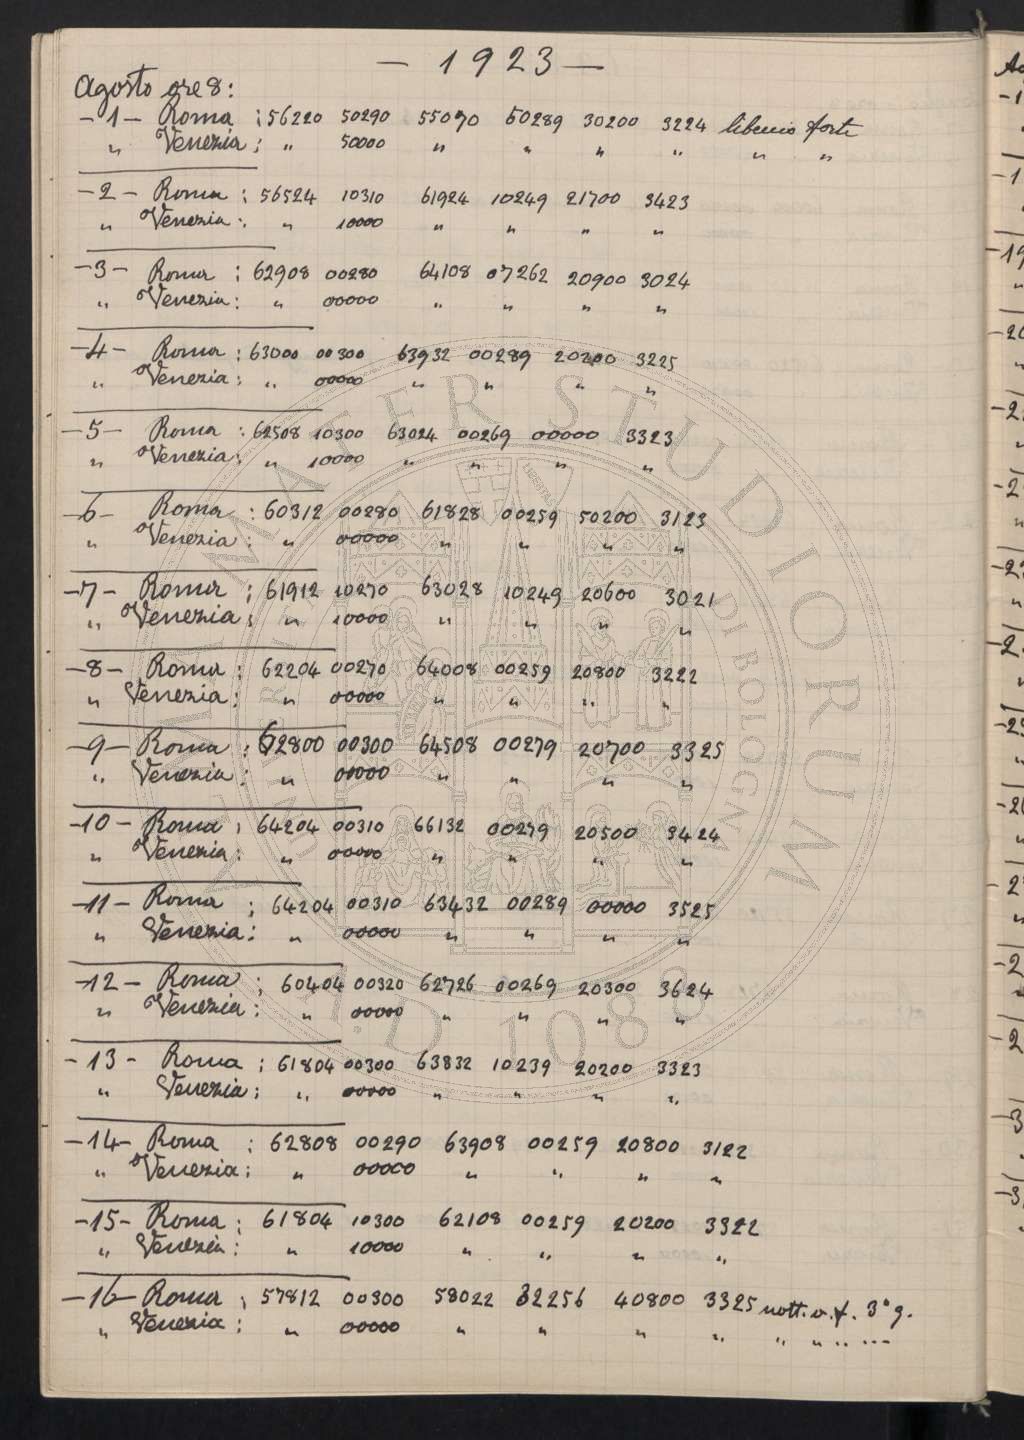 — 1923 —
Agosto ore 8:
-1- Roma : 56220 50290 55070 50289 30200 3224 libeccio forte
" Venezia : " 50000 " " " " " "
-2- Roma : 56524 10310 61924 10249 21700 3423
" Venezia : " 10000 " " " "
-3- Roma : 62908 00280 64108 07262 20900 3024
" Venezia : " 00000 " " " "
-4- Roma : 63000 00300 63932 00289 20200 3225
" Venezia : " 00000 " " " "
-5- Roma : 62508 10300 63024 00269 00000 3323
" Venezia : " 10000 " " " "
-6- Roma : 60312 00280 61828 00259 50200 3123
" Venezia : " 00000 " " " "
-7- Roma : 61912 10270 63028 10249 20600 3021
" Venezia : " 10000 " " " "
-8- Roma : 62204 00270 64008 00259 20800 3222
" Venezia : " 00000 " " " "
-9- Roma : 62800 00300 64508 00279 20700 3325
" Venezia : " 00000 " " " "
-10- Roma : 64204 00310 66132 00279 20500 3424
" Venezia : " 00000 " " " "
-11- Roma : 64204 00310 63432 00289 00000 3525
" Venezia : " 00000 " " " "
-12- Roma : 60404 00320 62726 00269 20300 3624
" Venezia : " 00000 " " " "
-13- Roma : 61804 00300 63832 10239 20200 3323
" Venezia : " 00000 " " " "
-14- Roma : 62808 00290 63908 00259 20800 3122
" Venezia : " 00000 " " " "
-15- Roma : 61804 10300 62108 00259 20200 3322
" Venezia : " 10000 " " " "
-16- Roma : 57812 00300 58022 32256 40800 3325 nott. v. f. 3° g.
" Venezia : " 00000 " " " " " " " ...
ALMA MATER STUDIORUM
A.D. 1088